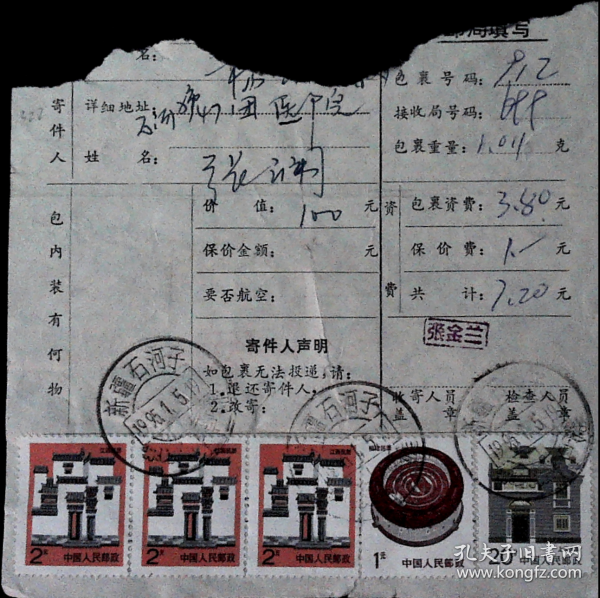 局填写
名：
包裹号码：912
寄件人
详细地址
团医院
接收局号码：
包裹重量：1.04 克
姓名：
包内装有何物
价值：100 元
资费
包裹资费：3.80 元
保价金额： 元
保价费：1.- 元
要否航空：
共计：7.20 元
张金兰
寄件人声明
如包裹无法投递，请：
1.退还寄件人；
2.改寄：
收寄人员
盖章
检查人员
盖章
新疆石河子
1996.1.5
新疆石河子
1996.1.5
江西民居
2元
中国人民邮政
江西民居
2元
中国人民邮政
江西民居
2元
中国人民邮政
1元
中国人民邮政
20
中国人民邮政
孔夫子旧书网
www.kongfz.com